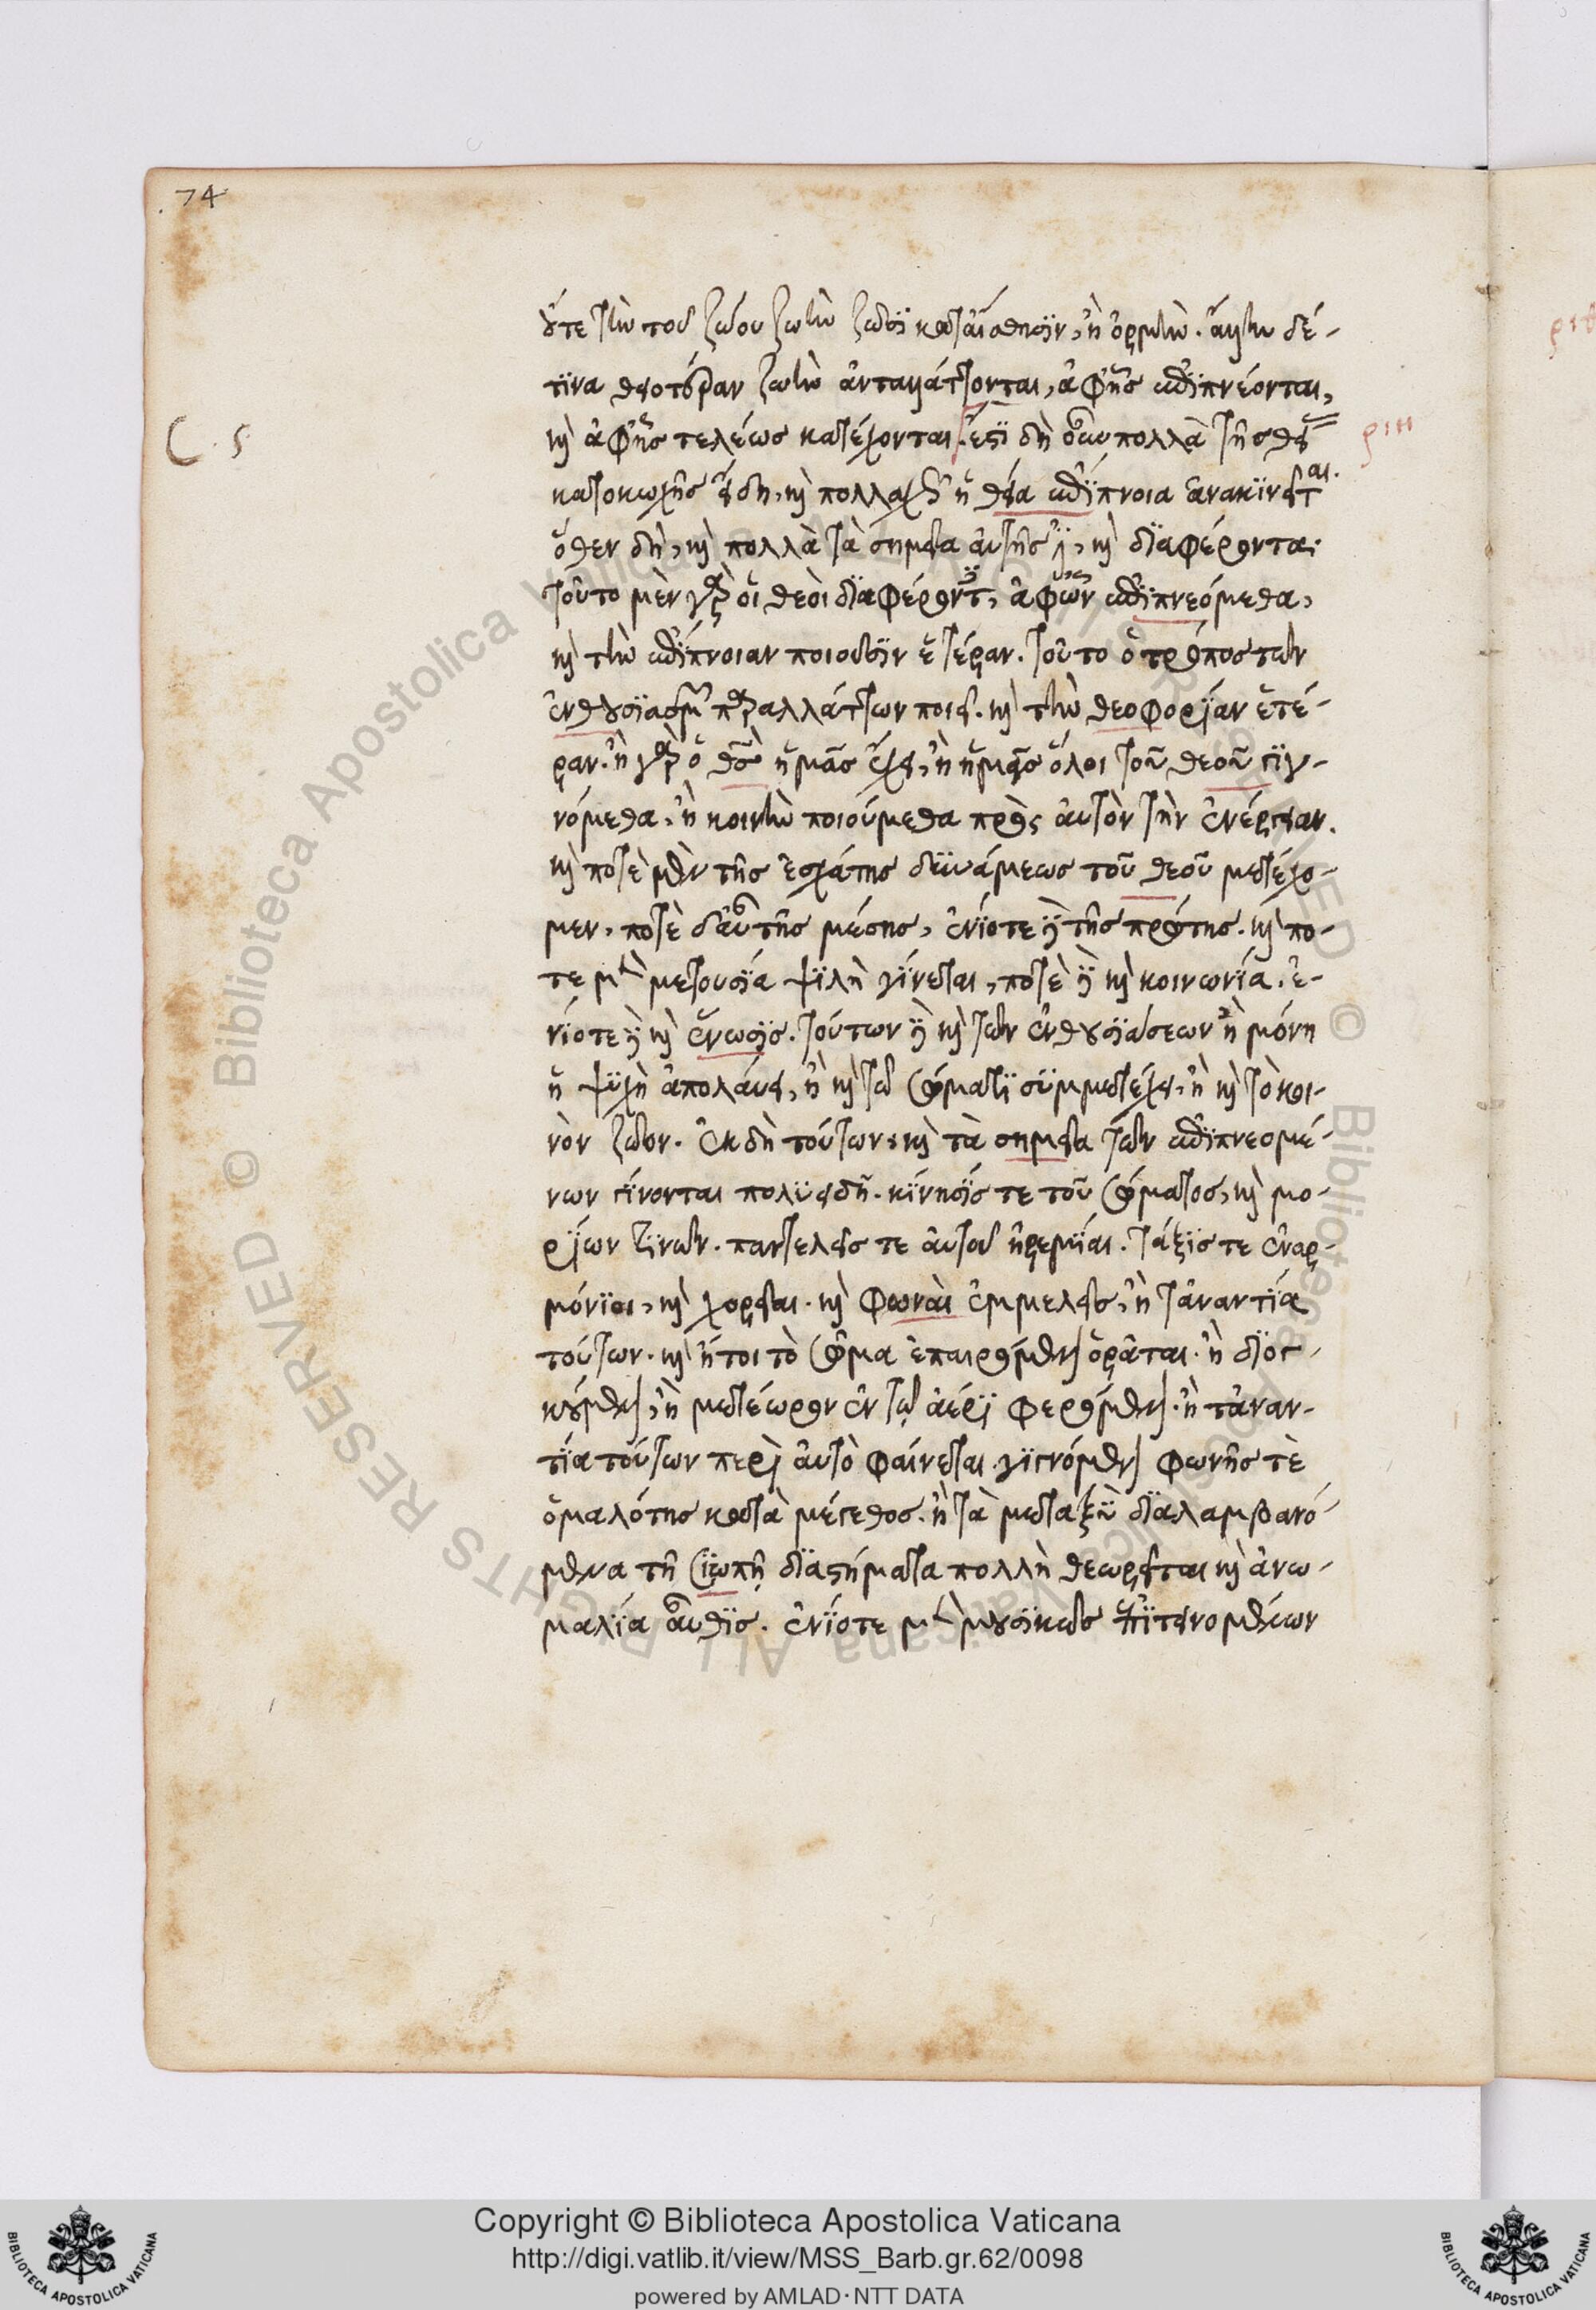 74
οὔτε τὴν τοῦ ζώου ζωὴν ζῶσι κατ' αἴσθησιν, ἢ ὁρμήν. ἄλλην δέ-
τινα θειοτέραν ζωὴν ἀνταλλάττονται, ἀφ' ἧς ἐπιπνέονται,
καὶ ἀφ' ἧς τελέως κατέχονται. ἔστι δὴ οὖν πολλὰ τῆς θείας
C. 5
ριη
κατοκωχῆς εἴδη, καὶ πολλαχῶς ἡ θεία ἐπίπνοια ἀνακινεῖται.
ὅθεν δὴ, καὶ πολλὰ τὰ σημεῖα αὐτῆς ἐστι, καὶ διαφέροντα·
τοῦτο μὲν γὰρ οἱ θεοὶ διαφέροντες, ἀφ' ὧν ἐπιπνεόμεθα,
καὶ τὴν ἐπίπνοιαν ποιοῦσιν ἑτέραν. τοῦτο ὁ τρόπος τῶν
ἐνθουσιασμῶν παραλλάττων ποιεῖ. καὶ τὴν θεοφορίαν ἑτέ-
ραν. ἢ γὰρ ὁ θεὸς ἡμᾶς ἔχει, ἢ ἡμεῖς ὅλοι τοῦ θεοῦ γιγ-
νόμεθα, ἢ κοινὴν ποιούμεθα πρὸς αὐτὸν τὴν ἐνέργειαν.
καὶ ποτὲ μὲν τῆς ἐσχάτης δυνάμεως τοῦ θεοῦ μετέχο-
μεν, ποτὲ δ' αὖ τῆς μέσης, ἐνίοτε δὲ τῆς πρώτης. καὶ πο-
τε μὲν μετουσία ψιλὴ γίνεται, ποτὲ δὲ καὶ κοινωνία. ἐ-
νίοτε δὲ καὶ ἕνωσις. τούτων δὲ καὶ τῶν ἐνθουσιάσεων ἢ μόνη
ἡ ψυχὴ ἀπολαύει, ἢ καὶ τῷ σώματι συμμετέχει, ἢ καὶ τὸ κοι-
νὸν ζῶον. ἐκ δὴ τούτων, καὶ τὰ σημεῖα τῶν ἐπιπνεομέ-
νων γίνονται πολυειδῆ. κίνησίς τε τοῦ σώματος, καὶ μο-
ρίων τινῶν. παντελεῖς τε αὐτοῦ ἠρεμίαι. τάξις τε ἐναρ-
μόνιοι, καὶ χορεῖαι. καὶ φωναὶ ἐμμελεῖς, ἢ τἀναντία
τούτων. καὶ ἤτοι τὸ σῶμα ἐπαιρόμενον ὁρᾶται. ἢ διογ-
κούμενον, ἢ μετέωρον ἐν τῷ ἀέρι φερόμενον. ἢ τἀναν-
τία τούτων περὶ αὐτὸ φαίνεται γιγνόμενον φωνῆς τὲ
ὁμαλότης κατὰ μέγεθος. ἢ τὰ μεταξὺ διαλαμβανό-
μενα τῇ σιωπῇ διαστήματα πολλὴ θεωρεῖται καὶ ἀνω-
μαλία αὖθις. ἐνίοτε μὲν μουσικῶς ἐπιτεινομένων
Copyright © Biblioteca Apostolica Vaticana
http://digi.vatlib.it/view/MSS_Barb.gr.62/0098
powered by AMLAD·NTT DATA